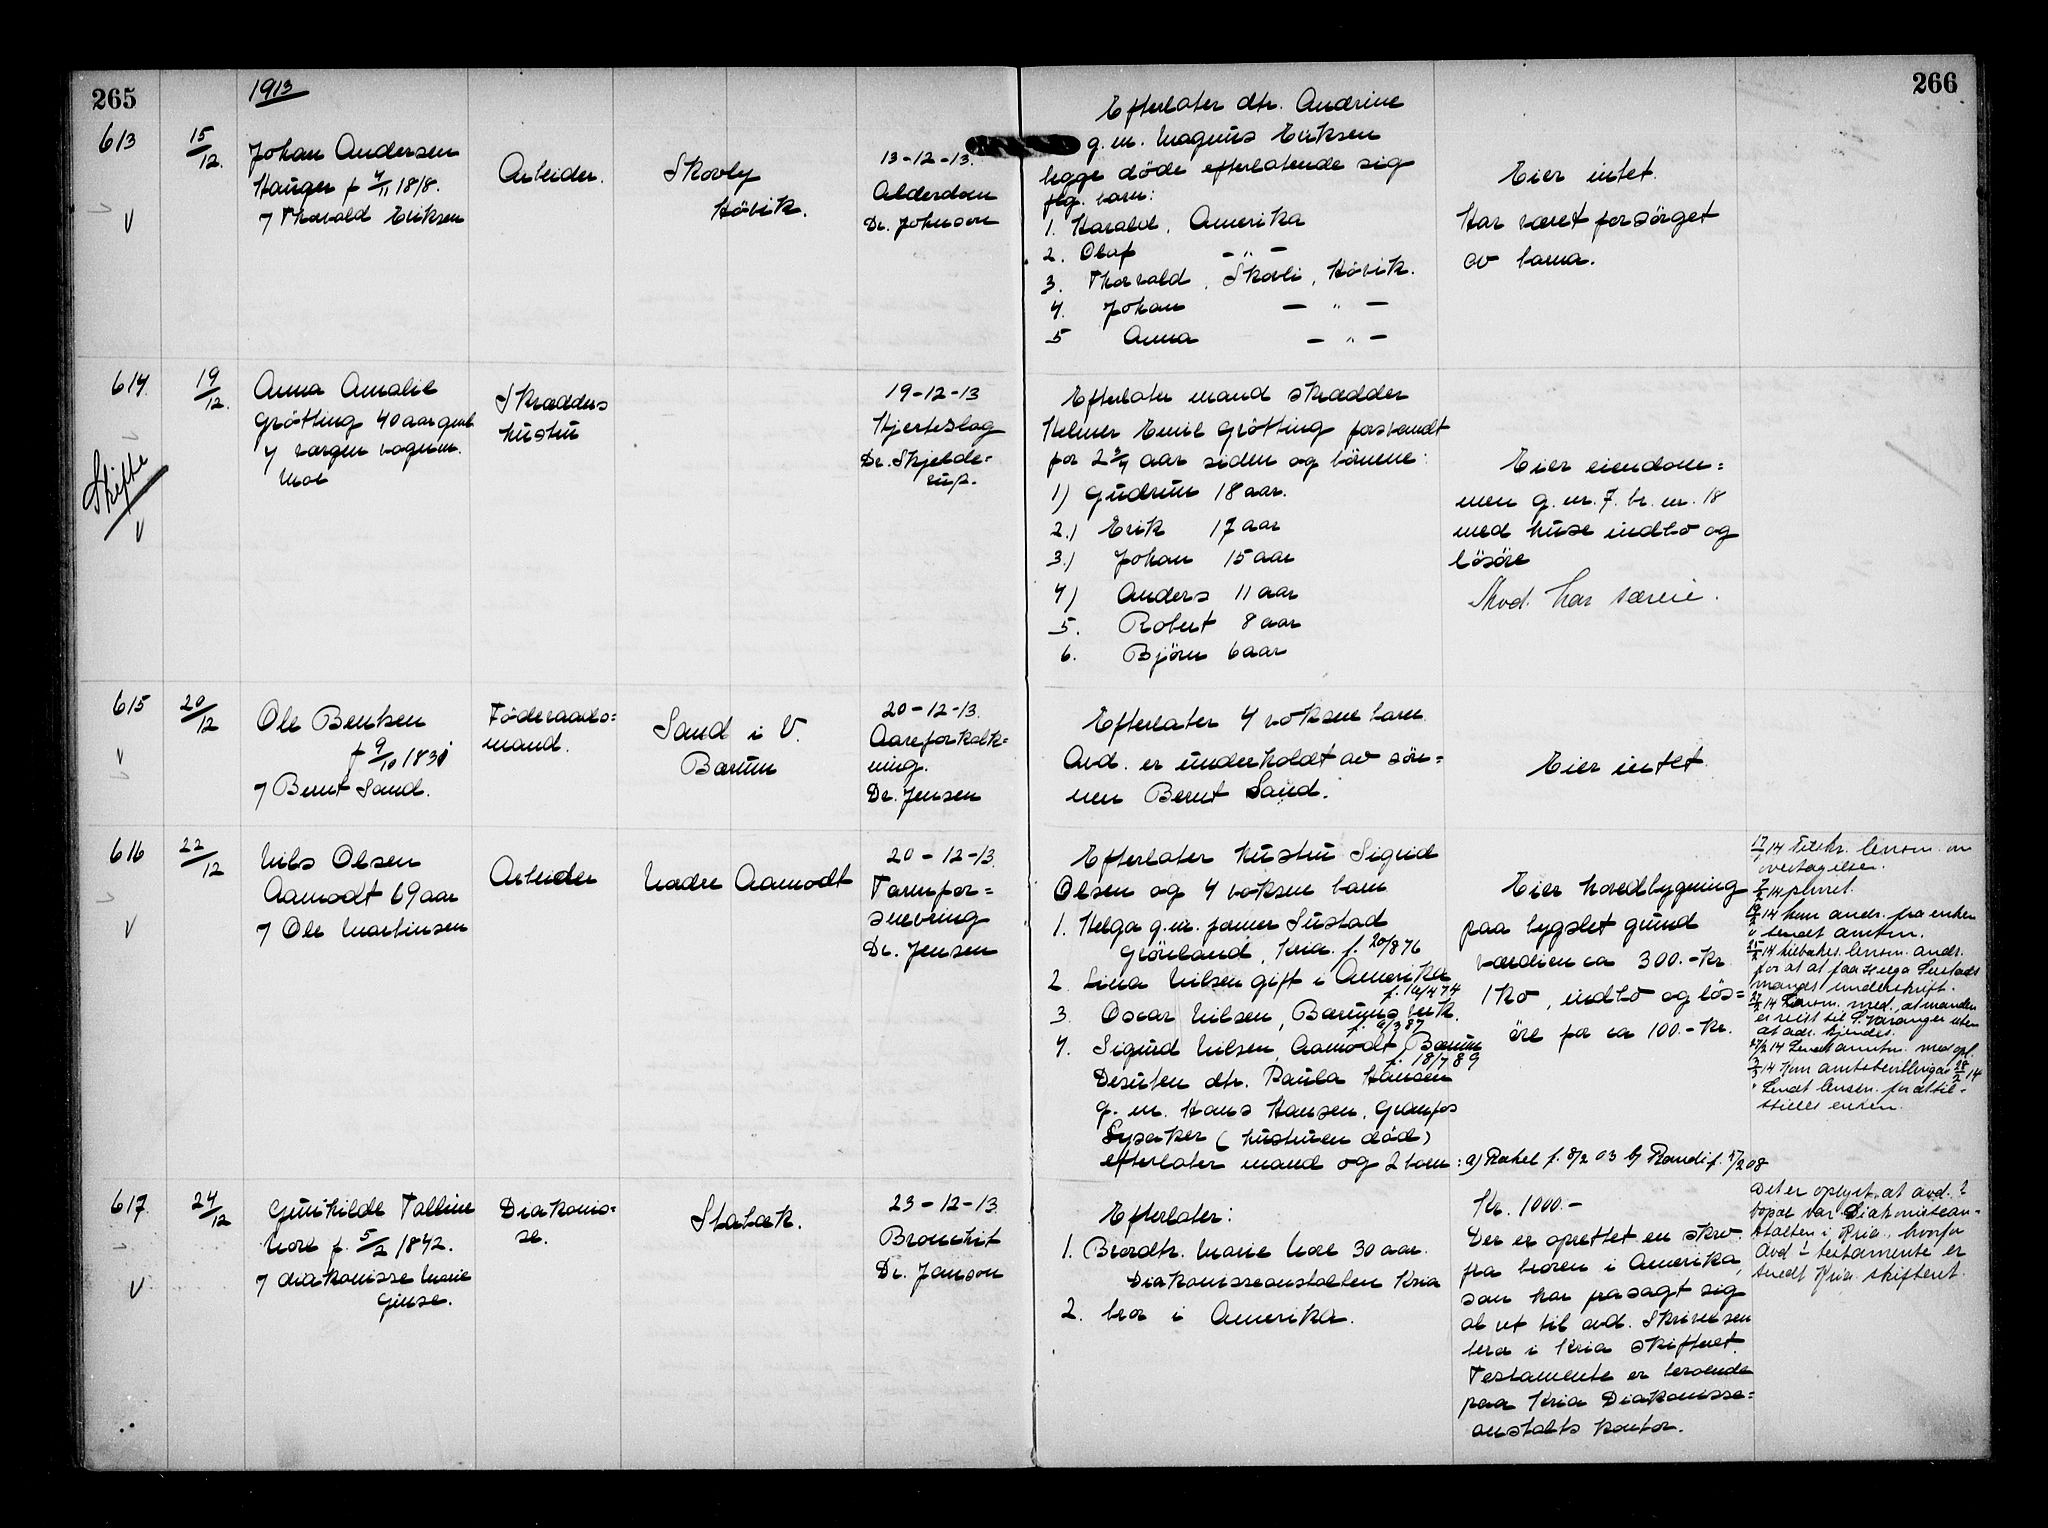 265
1913
266
613
15/12.
Johan Andersen
Hauger f 4/11 1818.
v/ Thorvald Eriksen
Arbeider.
Skovly
Hövik.
13-12-13.
Alderdom
Dr. Johnson
Efterlater dtr. Andrine
g.m. Magnus Eriksen
begge döde efterlatende sig
flg. barn:
1. Harald, Amerika
2. Olaf - " -
3. Thorvald, Skovli, Hövik.
4. Johan - " -
5 Anna - " -
Eier intet.
Har været forsörget
av barna.
V
614.
19/12.
Anna Amalie
Grötting 40 aar gml.
Skrædders
hustru
19-12-13
Hjerteslag
Dr. Skjelde=
rup.
Efterlater mand skrædder
Helmer Emil Grötting forsvandt
for 2 3/4 aar siden og börnene:
1) Gudrun 18 aar.
2.) Erik 17 aar
3.) Johan 15 aar
4) Anders 11 aar
5. Robert 8 aar
6. Björn 6 aar
Eier eiendom=
men g.nr. 7. br.nr. 18
med huse indbo og
lösöre
Skifte
V
615
20/12
Ole Bentsen
f 9/10 1830
v/ Bernt Sand.
Föderaads=
mand.
Sand i V.
Bærum
20-12-13.
Aareforkalk=
ning.
Dr. Jensen
Efterlater 4 voksne barn.
Avd. er underholdt av sön=
nen Bernt Sand.
Eier intet.
V
616
22/12
Nils Olsen
Aamodt 69 aar
v/ Ole Martinsen
Arbeider
Nadre Aamodt
20-12-13.
Tarmfor=
snevring
Dr. Jensen
Efterlater hustru Sigrid
Olsen og 4 voksne barn
1. Helga g.m. former Sustad
Grönland, Kria. f. 20/8 76
2. Lina Nilsen gift i Amerika
f. 16/4 74
3. Oscar Nilsen, Bærums Verk.
4. Sigurd Nilsen, Aamodt, Bærum
f. 18/7 89
Desuten dtr. Paula Hansen
g.m. Hans Hansen, Granfos
Lysaker (hustruen död)
efterlater mand og 2 barn: a) Rakel f. 8/2 03 b) Randi f. 17/2 08
Eier hovedbygning
paa bygslet grund
værdien ca 300.-kr.
1 ko, indbo og lös=
öre for ca 100.-kr.
17/1 14 tilskr. lensm. om
overtagelse.
7/2 14 purret.
19/2 14 kom andr. fra enken
" sendt amtm.
25/2 14 tilbakes. lensm. andr.
for at at faa Helga Sustads
mands underskrift.
27/2 14 Lensm. med. at manden
er reist til S. Varanger uten
at adr. kjendes.
27/2 14 Sendt amtm. med opl.
3/3 14 Kom amtsbevillingen 28/2 14
" Sendt lensm. for at til-
stilles enken.
V
617.
24/12
Gunhilde Talline
Nore f. 5/2 1842.
v/ diakonisse Marie
Giuse.
Diakonis=
se.
Stabæk.
23-12-13.
Bronchit
Dr. Janson
Efterlater:
1. Brordtr. Marie Nore 30 aar.
Diakonisseanstalten Kria
2. bror i Amerika.
Kr. 1000.-
Der er oprettet en skr.
fra broren i Amerika,
som har frasagt sig
alt til avd. Skrivelsen
bero i Kria skifteret.
Testamente er beroende
paa Kria Diakonisse=
anstalts kontor.
Det er oplyst at avd.s
bopæl var Diakonissean-
stalten i Kria., hvorfor
avd.s testamente er
sendt Kria. skifteret.
V